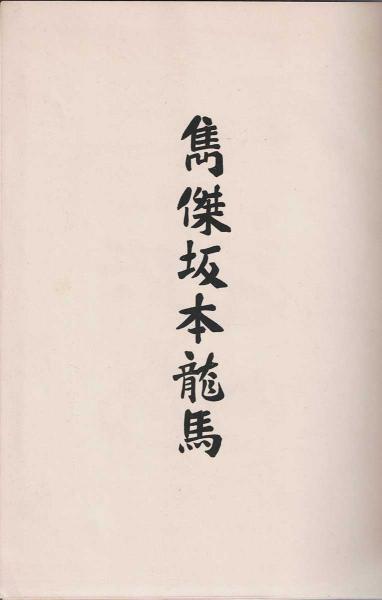 雋傑坂本龍馬